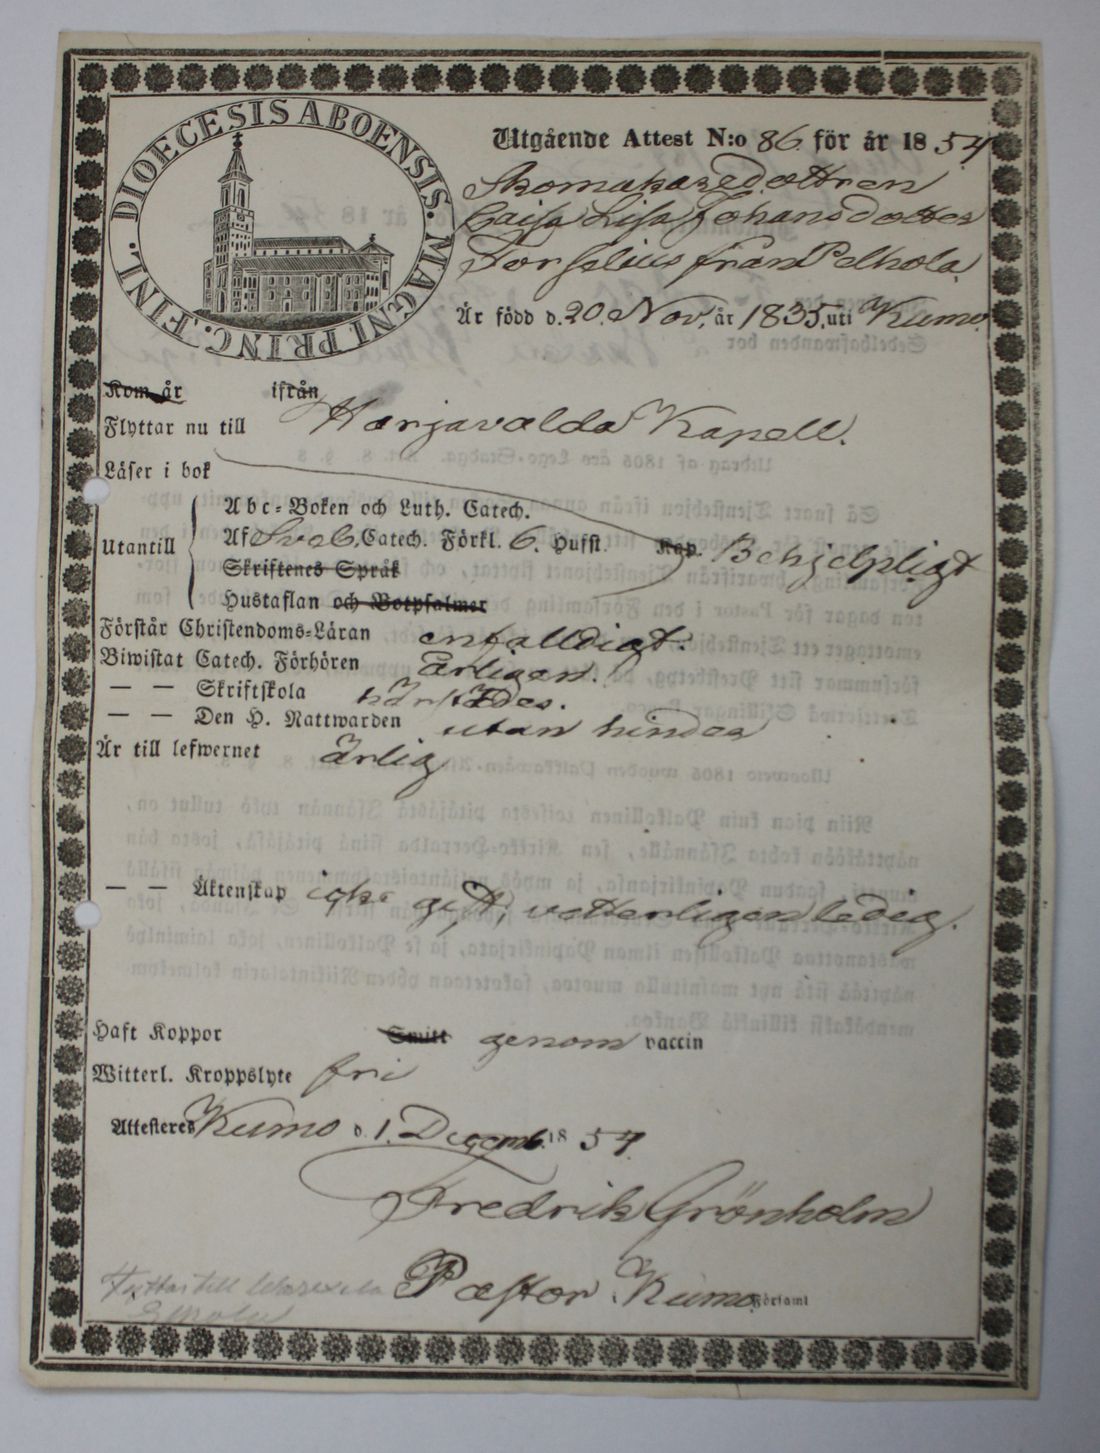 DIOECESIS ABOENSIS. MAGNI PRINC. FINL.
Utgående Attest N:o 86 för år 1854
Skomakaredottren
Caisa Lisa Johansdotter
Forselius från Pelhola
Är född d. 20. Nov. år 1835, uti Kumo
Kom år ifrån
Flyttar nu till Harjavalda Kapell.
Läser i bok
Abc-Boken och Luth. Catech.
Utantill Af Sveb. Catech. Förkl. 6. Hufst. Kap. Behjelpligt
Skriftenes Språk
Hustaflan och Botpsalmer
Förstår Christendoms-Läran enfalldigt.
Biwistat Catech. Förhören Årligen.
— — Skriftskola härstädes.
— — Den H. Nattwarden utan hinder
Är till lefwernet ärlig
— — Äktenskap icke gift, vetterligen ledig.
Haft Koppor Smitt genom vaccin
Witterl. Kroppslyte fri
Attesteres Kumo d. 1. Decemb. 1854
Fredrik Grönholm
Pastor i Kumo Församl
Flyttar till